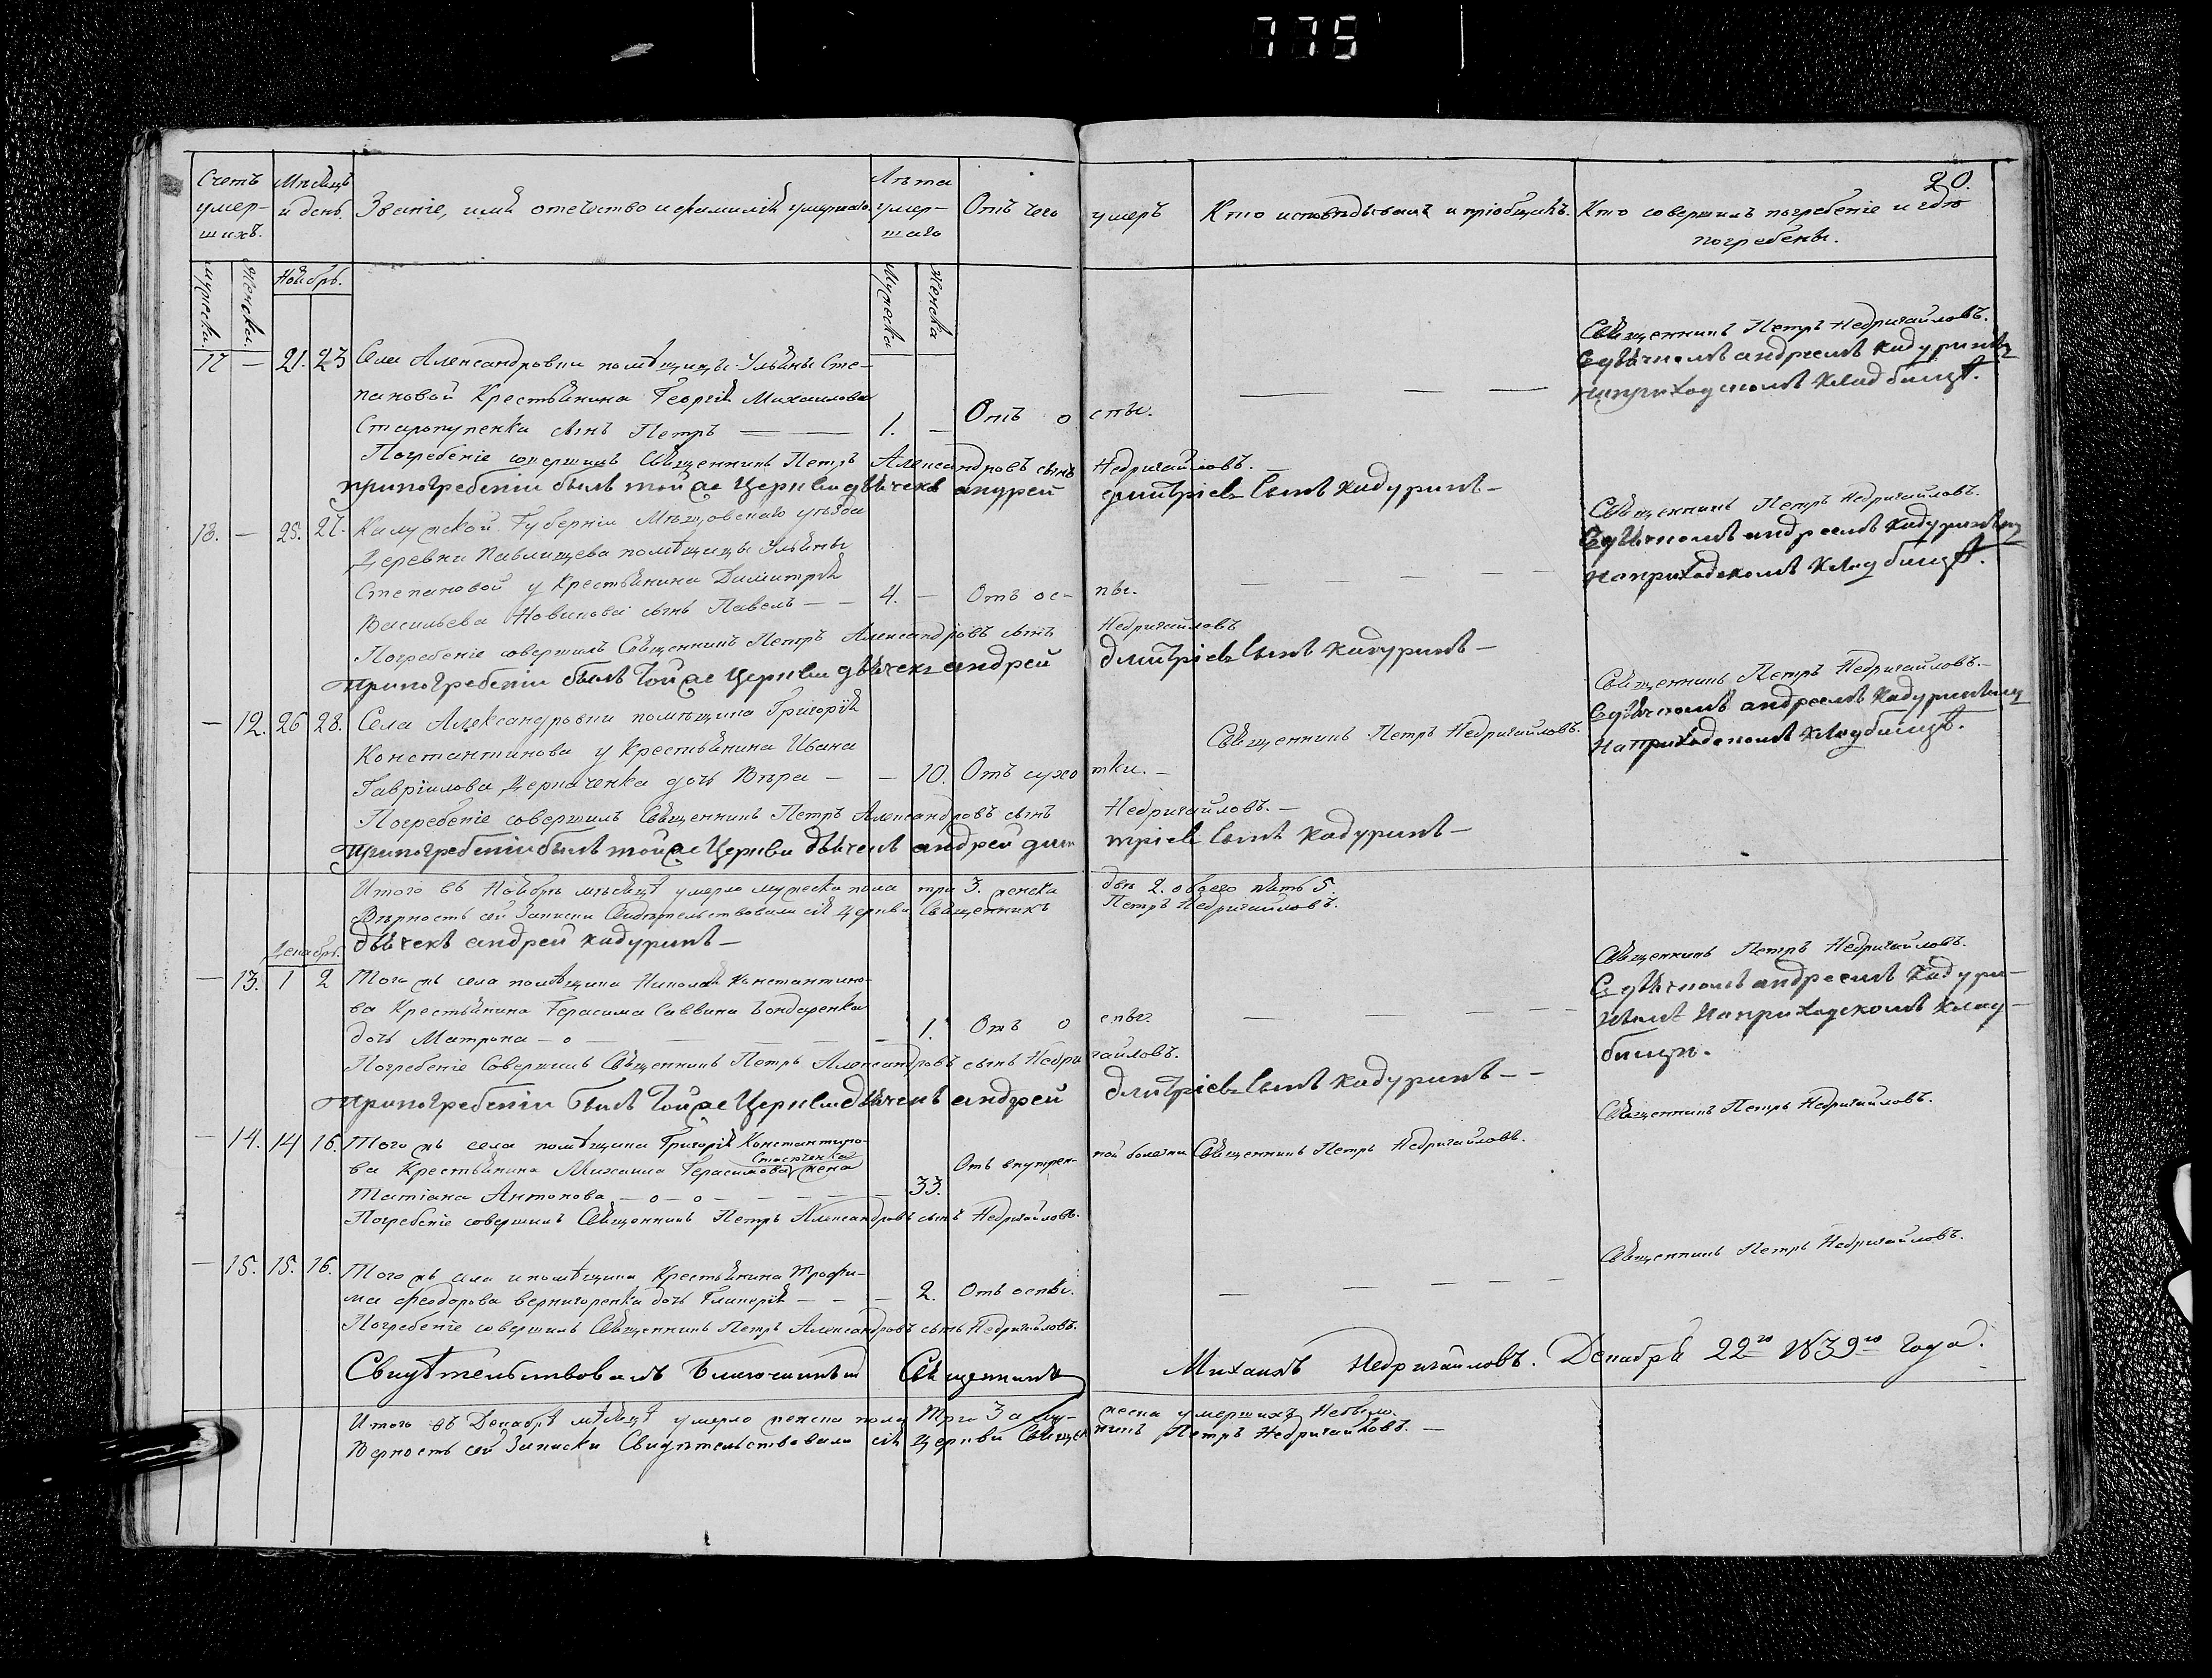 775
20.
Счетъ умершихъ.
Мѣсяцъ и день.
Званіе, имя отечество и фамилія умершаго.
Лѣта умершаго
Отъ чего умеръ
Кто исповѣдывалъ и пріобщалъ.
Кто совершилъ погребеніе и гдѣ погребены.
Мужеска. Женска.
Ноябрь.
Мужеска Женска
17 — 21. 23 Села Александровки помѣщицы Ульяны Сте-
пановой Крестьянина Георгія Михаилова
сынъ Петръ — — 1. — Отъ оспы. — — —
Священникъ Петръ Недригайловъ.
Съ дьячкомъ андреемъ кадуринымъ
на приходскомъ кладбищѣ.
Погребеніе совершилъ Священникъ Петръ Александровъ сынъ Недригайловъ. —
при погребеніи былъ той же Церкви дьячекъ андрей дмитріевъ сынъ кадуринъ —
18. — 25. 27. Калужской Губерніи Мещовскаго уѣзда
Деревни Павлищева помѣщицы Ульяны
Степановой у Крестьянина Димитрія
Васильева Новикова сынъ Павелъ — — 4. — Отъ оспы. — — —
Священникъ Петръ Недригайловъ.
Съ дьячкомъ андреемъ кадуринымъ
на приходскомъ кладбищѣ.
Погребеніе совершилъ Священникъ Петръ Александровъ сынъ Недригайловъ
при погребеніи былъ той же Церкви дьячекъ андрей дмитріевъ сынъ кадуринъ —
— 12. 26 28. Села Александровки помѣщика Григорія
Константинова у Крестьянина Ивана
Гавріилова Деркаченка дочь Вѣра — — 10. Отъ сухотки. —
Священникъ Петръ Недригайловъ.
Священникъ Петръ Недригайловъ. —
Съ дьячкомъ андреемъ кадуринымъ
на приходскомъ кладбищѣ.
Погребеніе совершилъ Священникъ Петръ Александровъ сынъ Недригайловъ. —
при погребеніи былъ той же Церкви дьячекъ андрей дмитріевъ сынъ кадуринъ —
Итого въ Ноябрѣ мѣсяцѣ умерло мужеска пола три 3. женска двѣ 2. обоего пять 5.
Вѣрность сей Записки Свидѣтельствовали сія Церкви Священникъ Петръ Недригайловъ.
дьячекъ андрей кадуринъ —
Декабрь.
— 13. 1 2 Того жъ села помѣщика Николая Константино-
ва Крестьянина Герасима Саввина Бондаренка
дочь Матрона — о — — 1. Отъ оспы. — — — —
Священникъ Петръ Недригайловъ.
Съ дьячкомъ андреемъ кадури-
нымъ на приходскомъ клад-
бищѣ.
Погребеніе Совершилъ Священникъ Петръ Александровъ сынъ Недригайловъ.
при погребеніи былъ той же Церкви дьячекъ андрей дмитріевъ сынъ кадуринъ — —
— 14. 14 16. Того жъ села помѣщика Григорія Константино-
ва Крестьянина Михаила Герасимова жена
Татіана Антонова — о — о — — — — 33. Отъ внутренной болезни Священникъ Петръ Недригайловъ.
Священникъ Петръ Недригайловъ.
Погребеніе совершилъ Священникъ Петръ Александровъ сынъ Недригайловъ.
— 15. 15. 16. Того жъ села и помѣщика Крестьянина Трофи-
ма Феодорова Вернигоренка дочь Гликерія — — — 2. Отъ оспы. — — — — —
Священникъ Петръ Недригайловъ.
Погребеніе совершилъ Священникъ Петръ Александровъ сынъ Недригайловъ.
Свидѣтельствовалъ Благочинный Священникъ Михаилъ Недригайловъ. Декабря 22го 1839го Года.
Итого въ Декабрѣ мѣсяцѣ умерло женска пола Три 3 а мужеска умершихъ Небыло.
Верность сей Записки Свидѣтельствовали сія Церкви Священникъ Петръ Недригайловъ. —